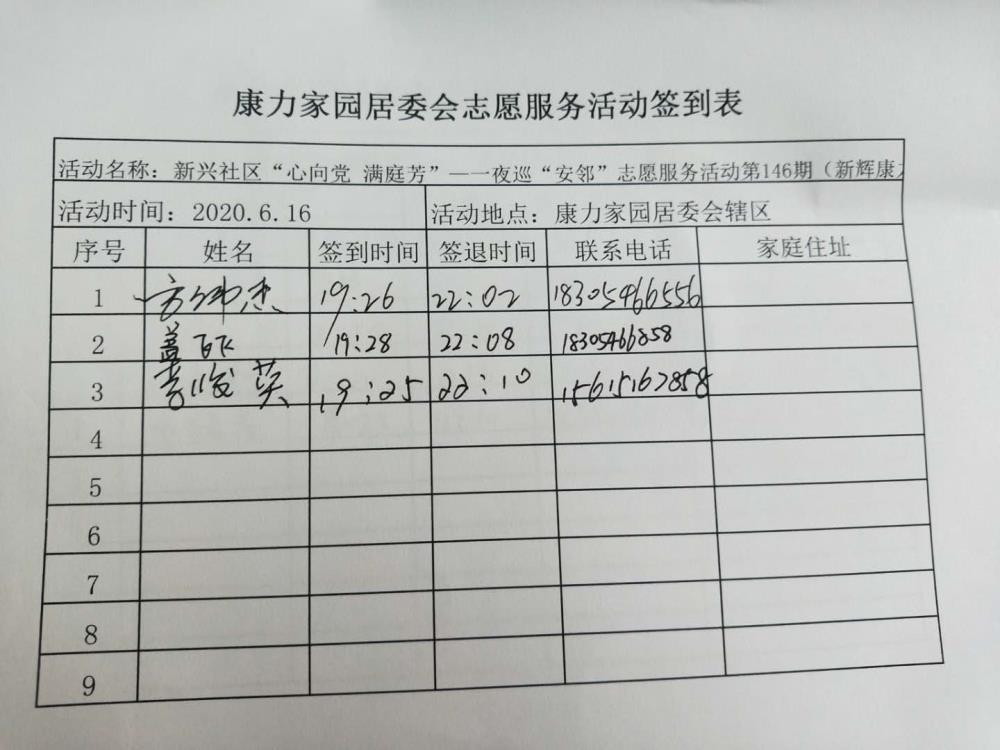 康力家园居委会志愿服务活动签到表
活动名称：新兴社区“心向党 满庭芳”—一夜巡“安邻”志愿服务活动第146期（新辉康
活动时间：2020.6.16 活动地点：康力家园居委会辖区
序号 姓名 签到时间 签退时间 联系电话 家庭住址
1 19:26 22:02 18305466556
2 19:28 22:08 18305466858
3 李俊英 19:25 22:10 15615167858
4
5
6
7
8
9